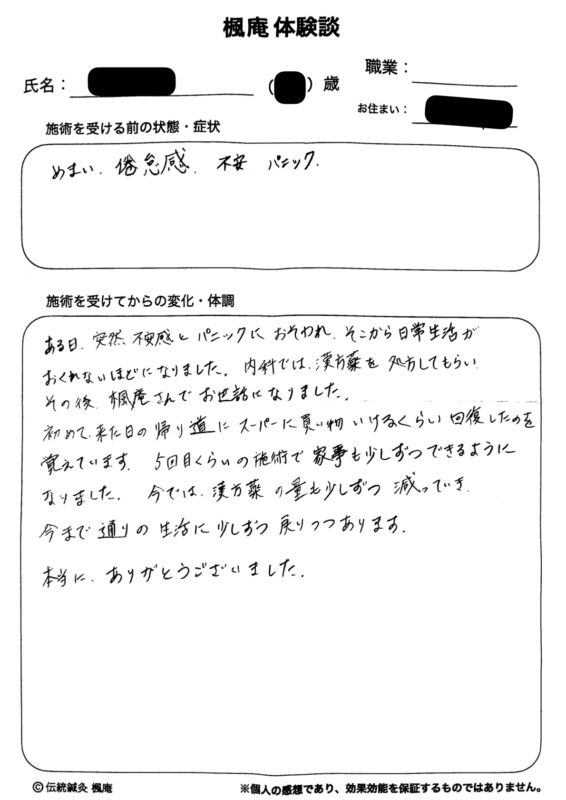 楓庵 体験談
氏名： （ ）歳
職業：
お住まい：
施術を受ける前の状態・症状
めまい、倦怠感、不安 パニック、
施術を受けてからの変化・体調
ある日、突然 不安感と パニックに おそわれ、そこから日常生活が
おくれないほどになりました。内科では、漢方薬を 処方してもらい
その後、楓庵さんで お世話になりました。
初めて、来た日の 帰り道に スーパーに買い物 いけるくらい 回復したのを
覚えています。5回目くらいの施術で 家事も少しずつできるように
なりました。 今では、漢方薬 の量も少しずつ 減っていき、
今まで通りの生活に少しずつ 戻りつつあります。
本当に、ありがとうございました。
© 伝統鍼灸 楓庵
※個人の感想であり、効果効能を保証するものではありません。